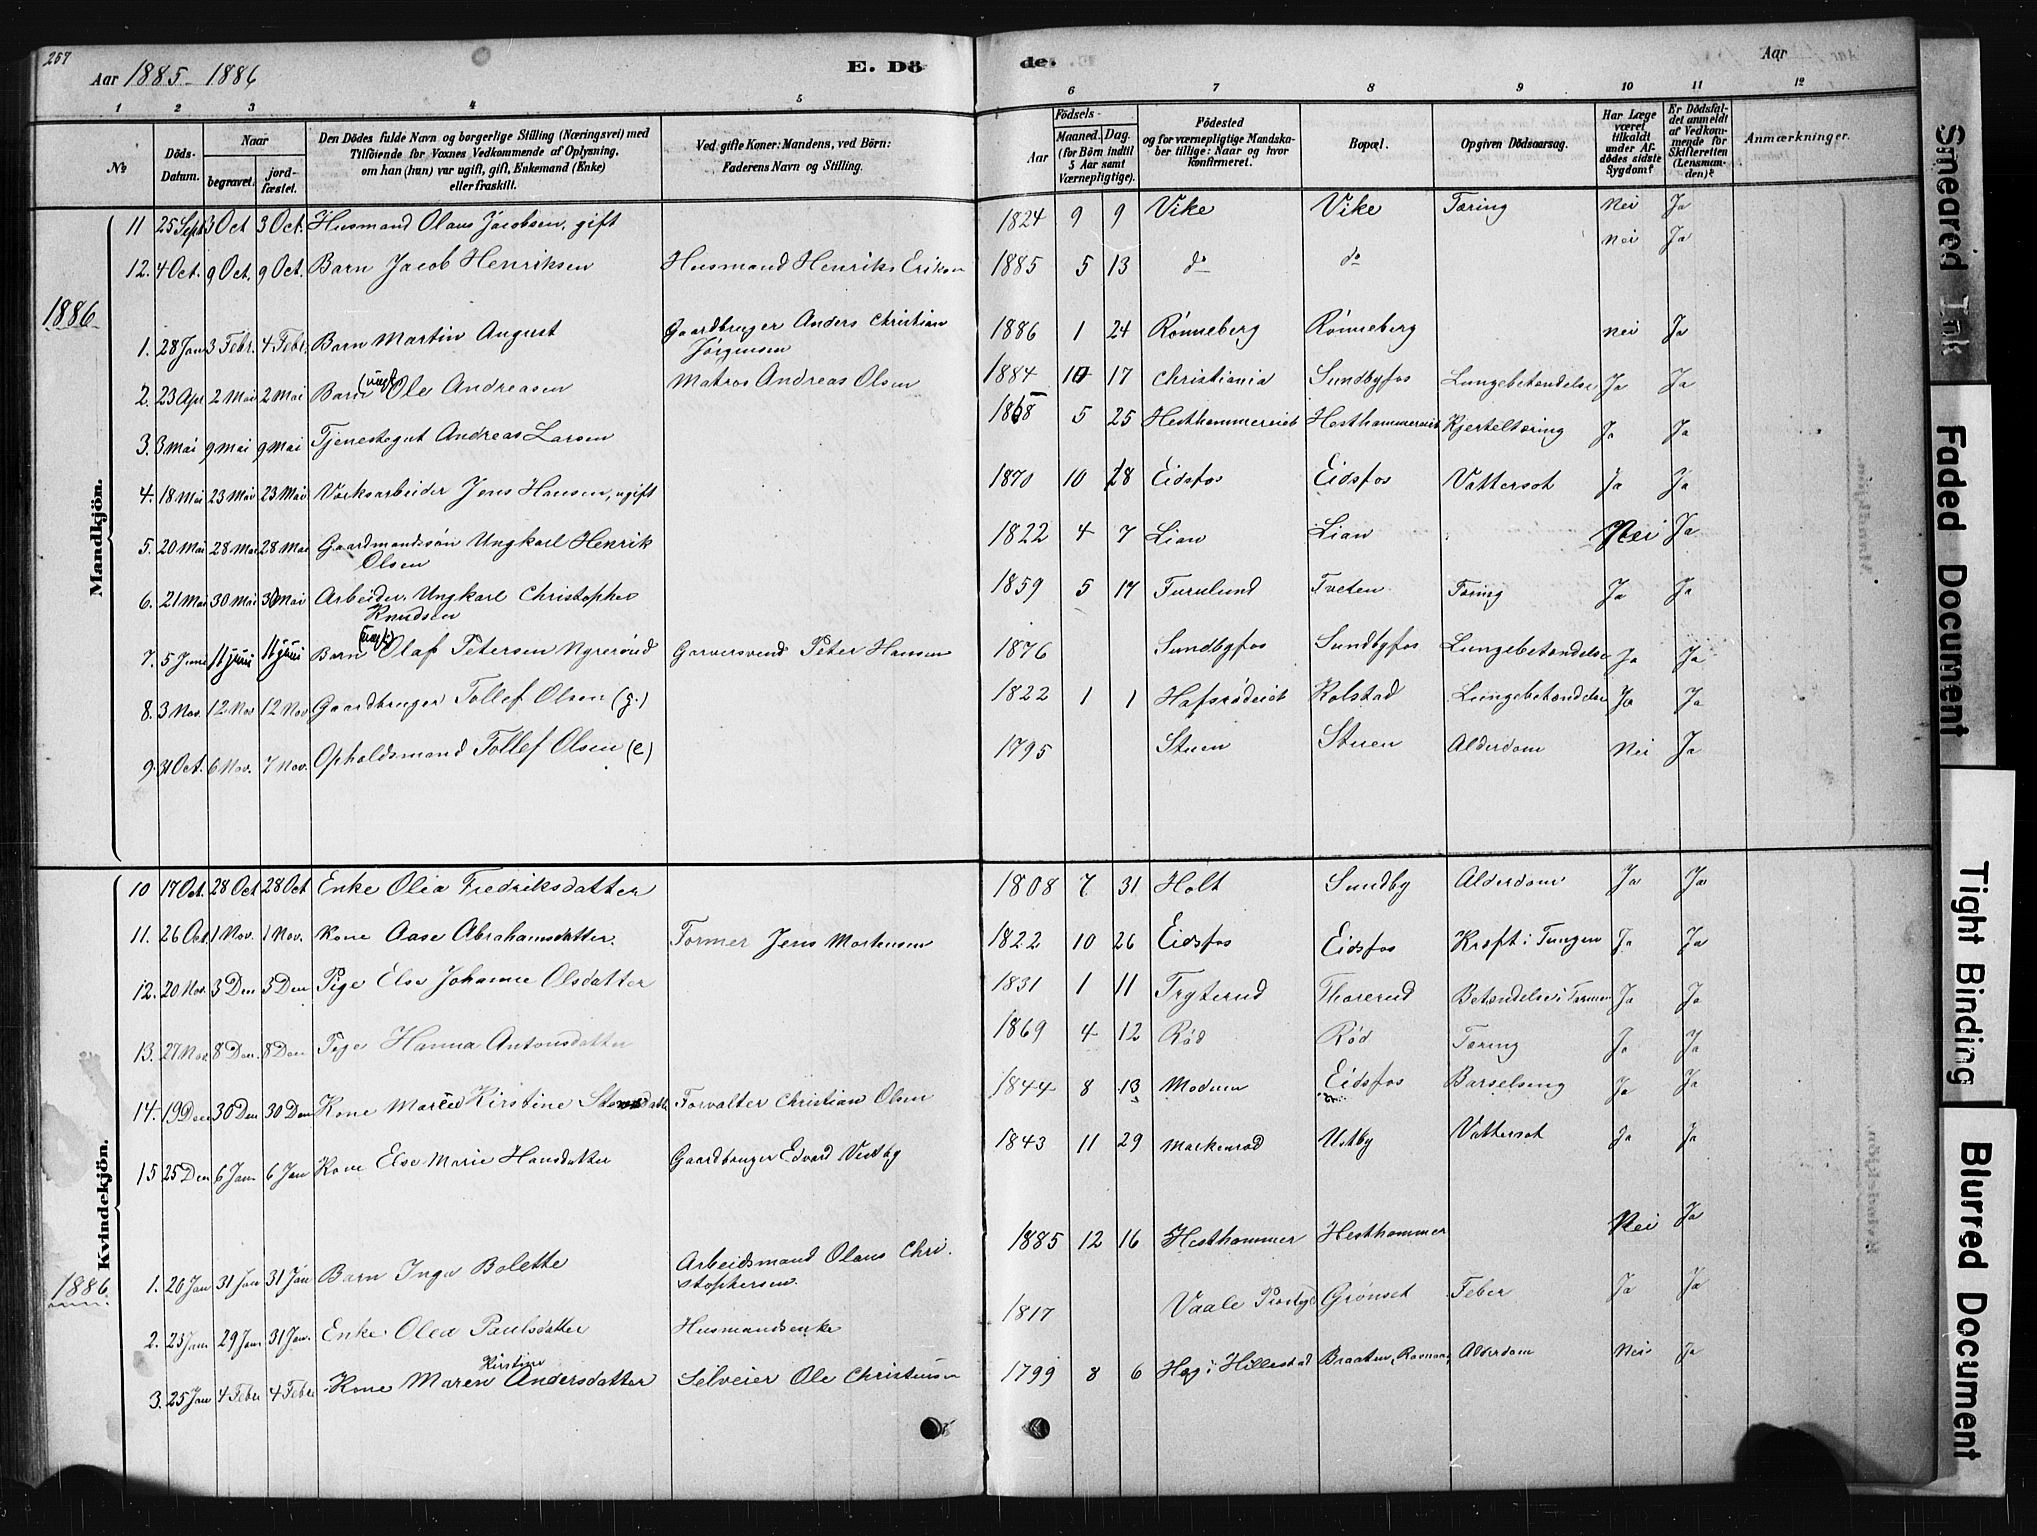 257
Aar 1885-1886
E. Dö
de.
Aar
1 2 3 4 5 6 7 8 9 10 11 12
No
Döds-Datum.
Naar
begravet.
jordfæstet.
Den Dödes fulde Navn og borgerlige Stilling (Næringsvei) med
Tilföiende for Voxnes Vedkommende af Oplysning,
om han (hun) var ugift, gift, Enkemand (Enke)
eller fraskilt.
Ved gifte Koner: Mandens, ved Börn:
Faderens Navn og Stilling.
Födsels-
Aar
Maaned. Dag.
(for Börn indtil
5 Aar samt
Værnepligtige).
Födested
og for værnepligtige Mandskaber tillige: Naar og hvor
konfirmeret.
Bopæl.
Opgiven Dödsaarsag.
Har Læge
været
tilkaldt
under Afdödes sidste
Sygdom?
Er Dödsfaldet anmeldt
af Vedkommende for
Skifteretten
(Lensmanden)?
Anmærkninger.
Mandkjön.
11 25 Sept 3 Oct 3 Oct. Husmand Olaus Jacobsen, gift 1824 9 9 Vike Vike Tæring Nei Ja
12. 4 Oct. 9 Oct. 9 Oct. Barn Jacob Henriksen Husmand Henriks Eriksen 1885 5 13 do do Nei Ja
1886
1. 28 Jan 3 Febr. 4 Febr. Barn Martin August Gaardbruger Anders Christian Jörgensen 1886 1 24 Rønneberg Rønneberg Nei Ja
2. 23 Apr 2 Mai 2 Mai Barn Ole Andreasen Matros Andreas Olsen 1884 10 17 Christiania Sundbyfos Lungebetændelse Ja Ja
3. 3 Mai 9 Mai 9 Mai Tjenestegut Andreas Larsen 1868 5 25 Hesthammereiet Hesthammereiet Kjerteltæring Ja Ja
4. 18 Mai 23 Mai 23 Mai Værksarbeider Jens Hansen, ugift 1870 10 28 Eidsfos Eidsfos Vattersot Ja Ja
5. 20 Mai 28 Mai 28 Mai Gaardmandssøn Ungkarl Henrik Olsen 1822 4 7 Lian Lian Nei Ja
6. 21 Mai 30 Mai 30 Mai Arbeider Ungkarl Christopher Knudsen 1859 5 17 Furulund Tveten Tæring Ja Ja
7. 5 Juni 11 juni 11 juni Barn Olaf Petersen Nyrerönd Garversvend Peter Hansen 1876 Sundbyfos Sundbyfos Lungebetændelse Ja Ja
8. 3 Nov. 12 Nov 12 Nov Gaardbruger Tollef Olsen (g.) 1822 1 1 Hafsrødeiet Kolstad Lungebetændelse Ja Ja
9. 31 Oct. 6 Nov. 7 Nov. Opholdsmand Tollef Olsen (e) 1795 Stuen Stuen Alderdom Nei Ja
Kvindekjön.
10 17 Oct. 28 Oct 28 Oct Enke Olea Fredriksdatter 1808 7 31 Holt Sundby Alderdom Ja Ja
11. 26 Oct. 1 Nov. 1 Nov. Kone Aase Abrahamsdatter. Former Jens Mortensen 1822 10 26 Eidsfos Eidsfos Kræft i Tungen Ja Ja
12. 20 Nov. 3 Dec 3 Dec Pige Else Johanne Olsdatter 1831 1 11 Tryterud Thorerud Betændelse i Tarmen Ja Ja
13. 27 Nov. 8 Dec. 8 Dec Pige Hanna Antonsdatter 1869 4 12 Rød Rød Tæring Ja Ja
14. 19 Dec 30 Dec 30 Dec Kone Maren Kirstine Forvalter Christian Olsen 1844 8 13 Modum Eidsfos Barselseng Ja Ja
15 25 Dec 6 Jan 6 Jan Kone Else Marie Hansdatter Gaardbruger Edvard Vestby 1843 11 29 Markerød Ustby Vattersot Ja Ja
1886
1. 20 Jan 31 Jan 31 Jan Barn Inga Bolette Arbeidsmand Olaus Christophersen. 1885 12 16 Hesthammer Hesthammer Nei Ja
2. 23 Jan 29 Jan 31 Jan. Enke Olea Paulsdatter Husmandsenke 1817 Vaale Grönset Feber Ja Ja
3. 25 Jan 4 Febr 4 Febr Kone Maren Kirstine Andersdatter Selveier Ole Christensen 1799 8 6 Hillestad Braaten, Alderdom Nei Ja
Smeared Ink
Faded Document
Tight Binding
Blurred Document